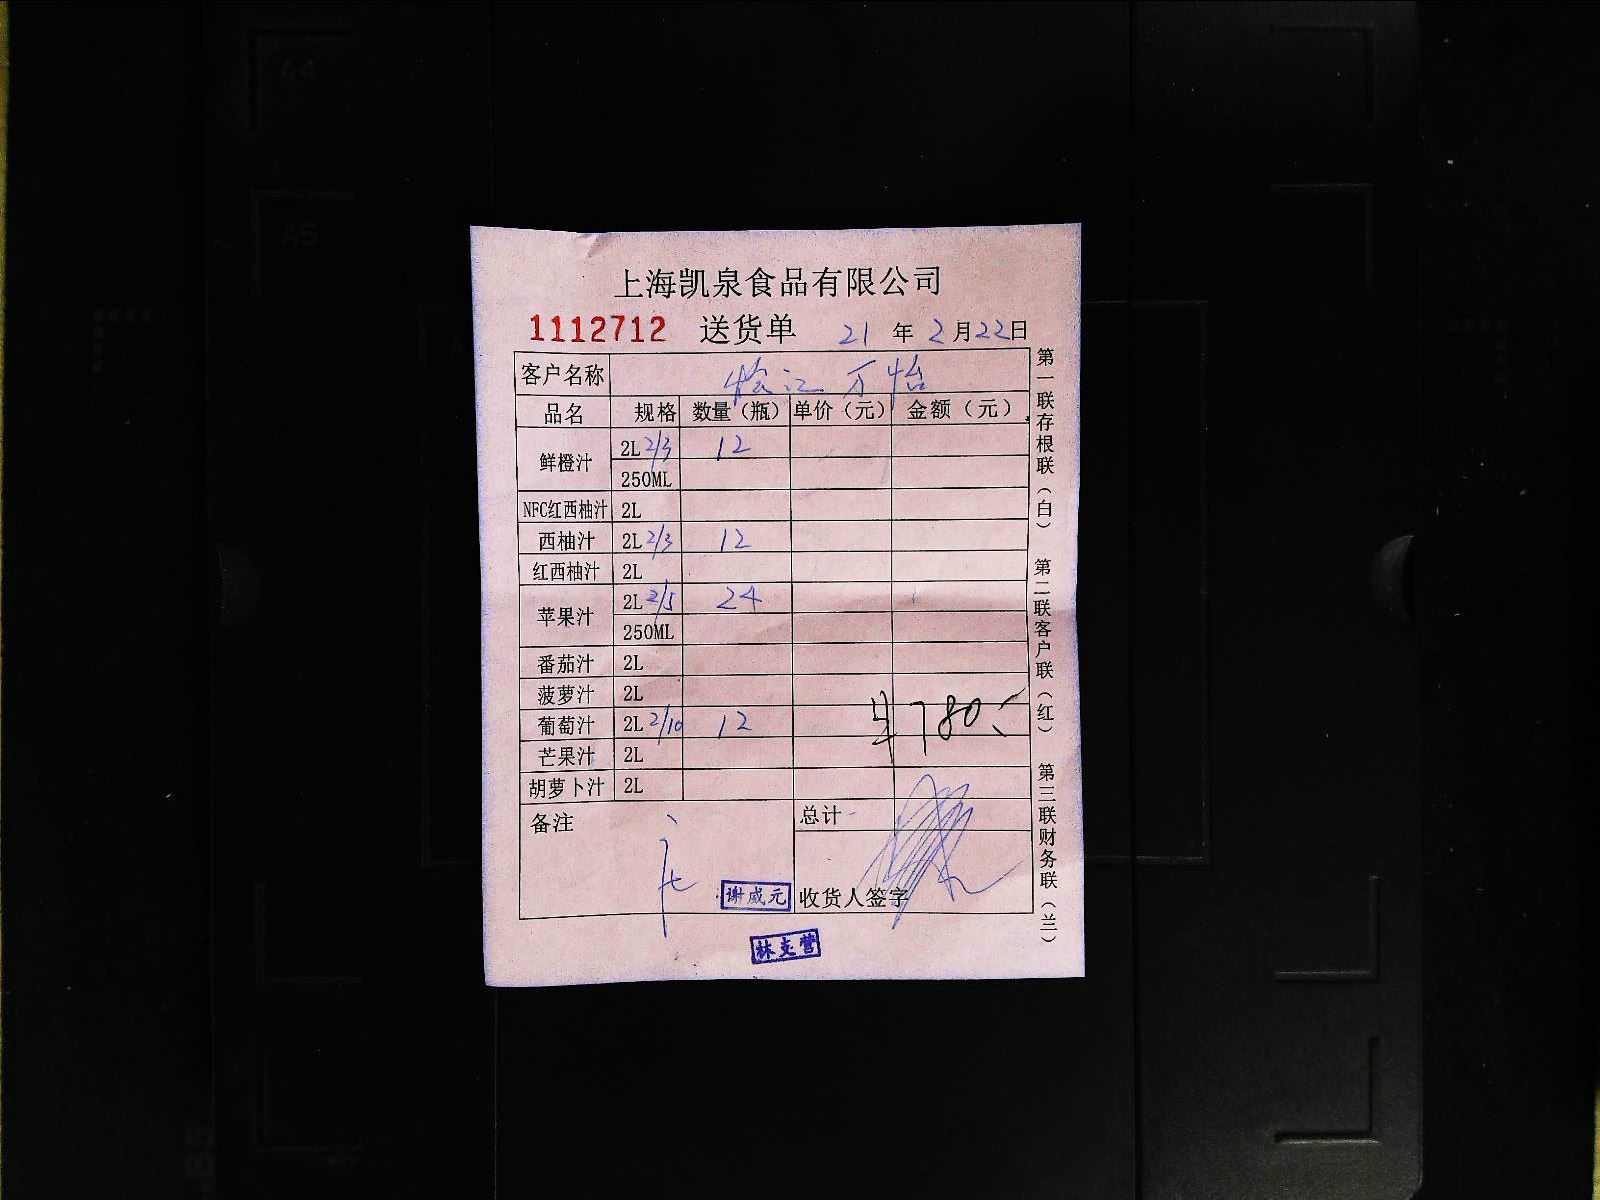 上海凯泉食品有限公司
1112712 送货单 21 年 2 月 22 日
客户名称 松江万怡
品名 规格 数量（瓶） 单价（元） 金额（元）
鲜橙汁 2L 2/3 12
250ML
NFC红西柚汁 2L
西柚汁 2L 2/3 12
红西柚汁 2L
苹果汁 2L 2/5 24
250ML
番茄汁 2L
菠萝汁 2L
葡萄汁 2L 2/10 12
芒果汁 2L
胡萝卜汁 2L
¥780
备注 总计
谢威元 收货人签字
第一联存根联（白） 第二联客户联（红） 第三联财务联（兰）
A4
A5
B5